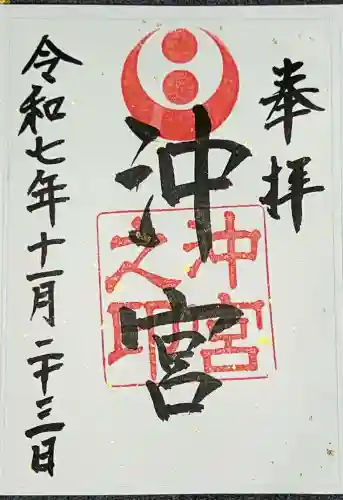 奉拝
沖宮
沖宮之印
令和七年十一月二十三日